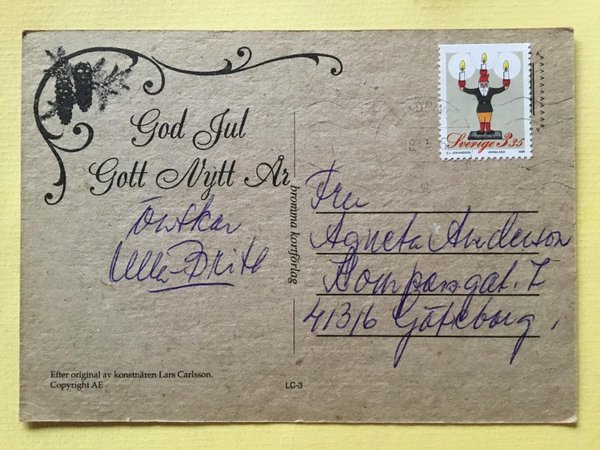 God Jul
Gott Nytt År
önskar
Ulla-Britt
bromma kortförlag
Sverige 3.35
Fru
Agneta Anderson
Kompassgat. 7
41316 Göteborg.
Efter original av konstnären Lars Carlsson.
Copyright AE
LC-3